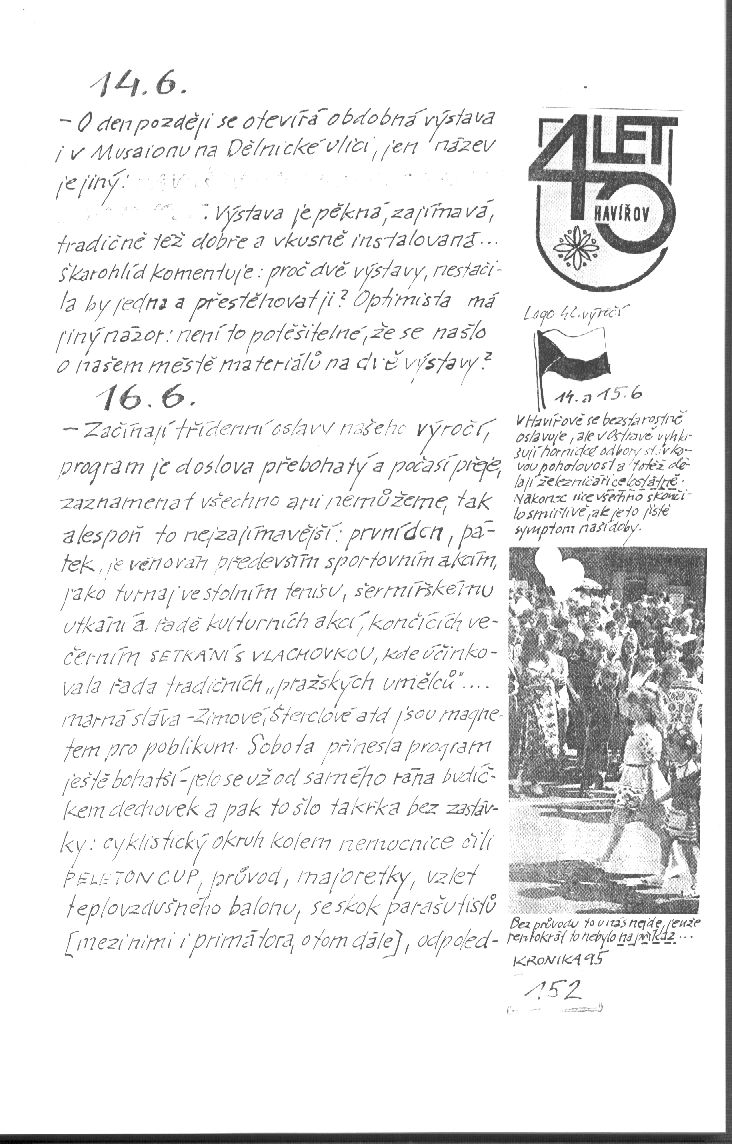 14.6.
– O den později se otevírá obdobná výstava
i v Musaionu na Dělnické ulici, jen název
je jiný:
. Výstava je pěkná, zajímavá,
tradičně též dobře a vkusně instalovaná...
Škarohlíd komentuje: proč dvě výstavy, nestači-
la by jedna a přestěhovat ji? Optimista má
jiný názor: není to potěšitelné, že se našlo
o našem městě materiálů na dvě výstavy?
16.6.
– Začínají třídenní oslavy našeho výročí,
program je doslova přebohatý a počasí přeje,
zaznamenat všechno ani nemůžeme, tak
alespoň to nejzajímavější: první den, pá-
tek, je věnován především sportovním akcím,
jako turnaj ve stolním tenisu, šermířskému
utkání a řadě kulturních akcí, končících ve-
černím SETKÁNÍ S VLACHOVKOU, kde účinko-
vala řada tradičních „pražských umělců"....
marná sláva - Zimové, Šterclové atd jsou magne-
tem pro poblikum. Sobota přinesla program
ještě bohatší - jelo se už od samého rána budíč-
kem dechovek a pak to šlo takřka bez zastáv-
ky: cyklistický okruh kolem nemocnice čili
PELETON CUP, průvod, majoretky, vzlet
teplovzdušného balonu, seskok parašutistů
[mezi nimi i primátora, o tom dále], odpoled-
40 LET
HAVÍŘOV
Logo 40. výročí
14. a 15.6
V Havířově se bezstarostně
oslavuje, ale v Ostravě vyhla-
šují hornické odbory stávko-
vou pohotovost a totéž dě-
lají železničáři celostátně.
Nakonec sice všechno skonči-
lo smírlivě, ale je to jistě
symptom naší doby.
Bez průvodu to u nás nejde, jenže
tentokrát to nebylo na příkaz...
KRONIKA 95
152